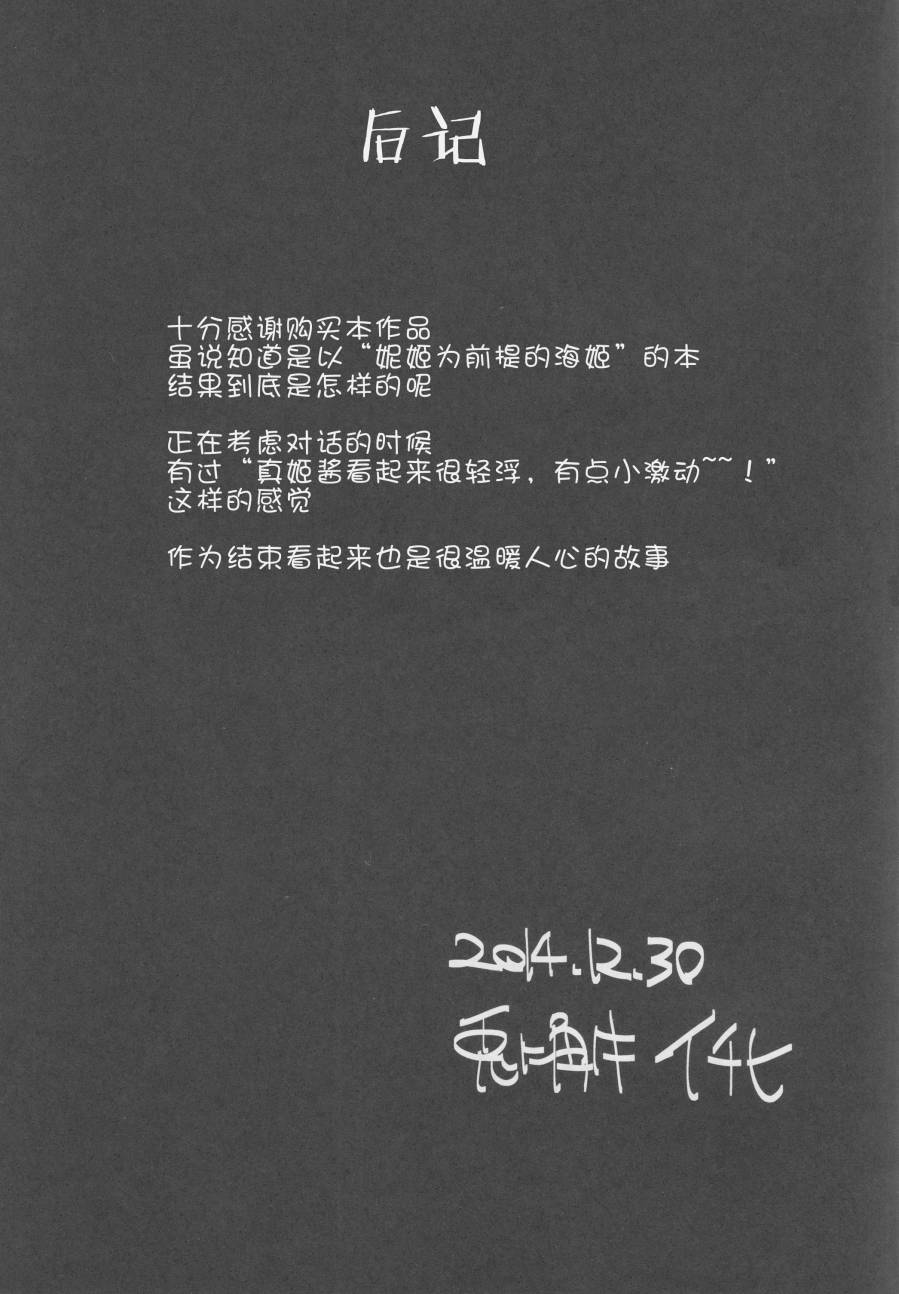 后记
十分感谢购买本作品
虽说知道是以“妮姬为前提的海姬”的本
结果到底是怎样的呢
正在考虑对话的时候
有过“真姬酱看起来很轻浮，有点小激动~~！”
这样的感觉
作为结束看起来也是很温暖人心的故事
2014.12.30